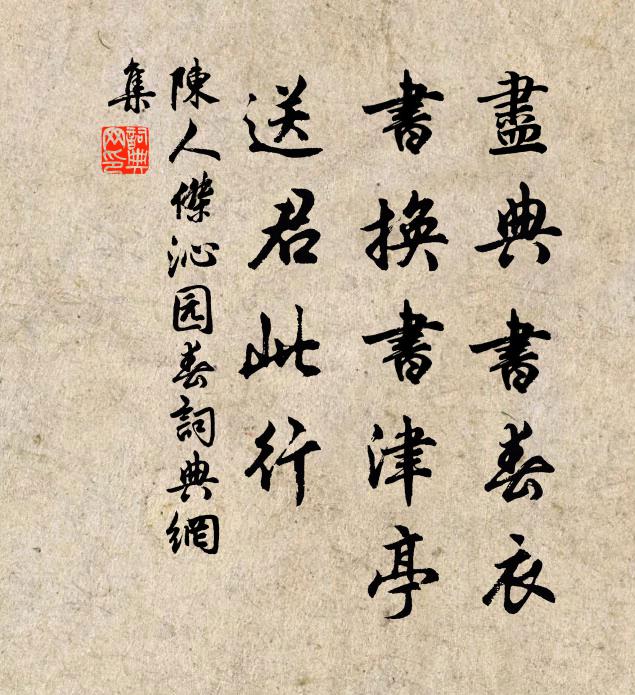 盡典書春衣
書換書津亭
送君此行
陳人傑沁园春詞典網
集
詞典网印